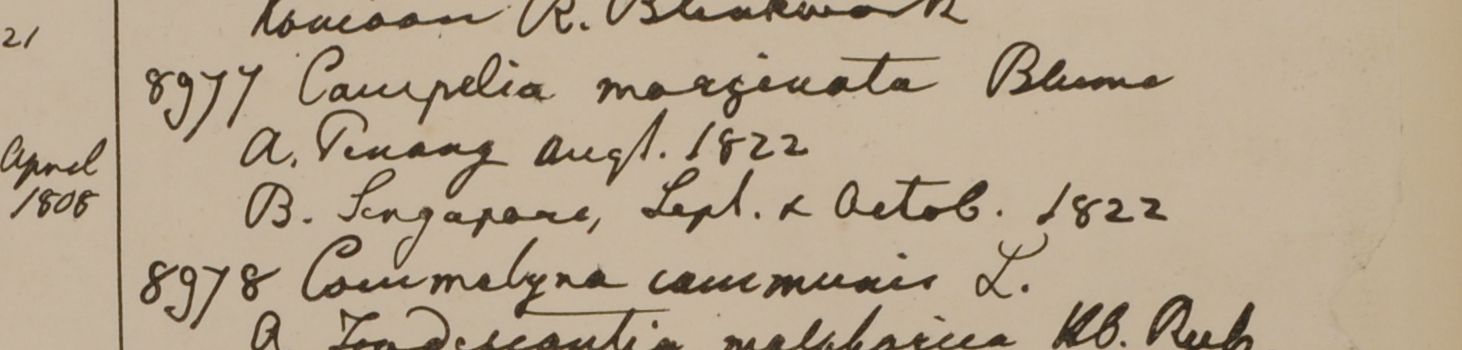 21
R.
8977 Campelia marginata Blume
A. Penang Augt. 1822
April
1808
B. Singapore, Sept. & Octob. 1822
8978 Commelyna communis L.
A Tradescantia malabarica Hb.